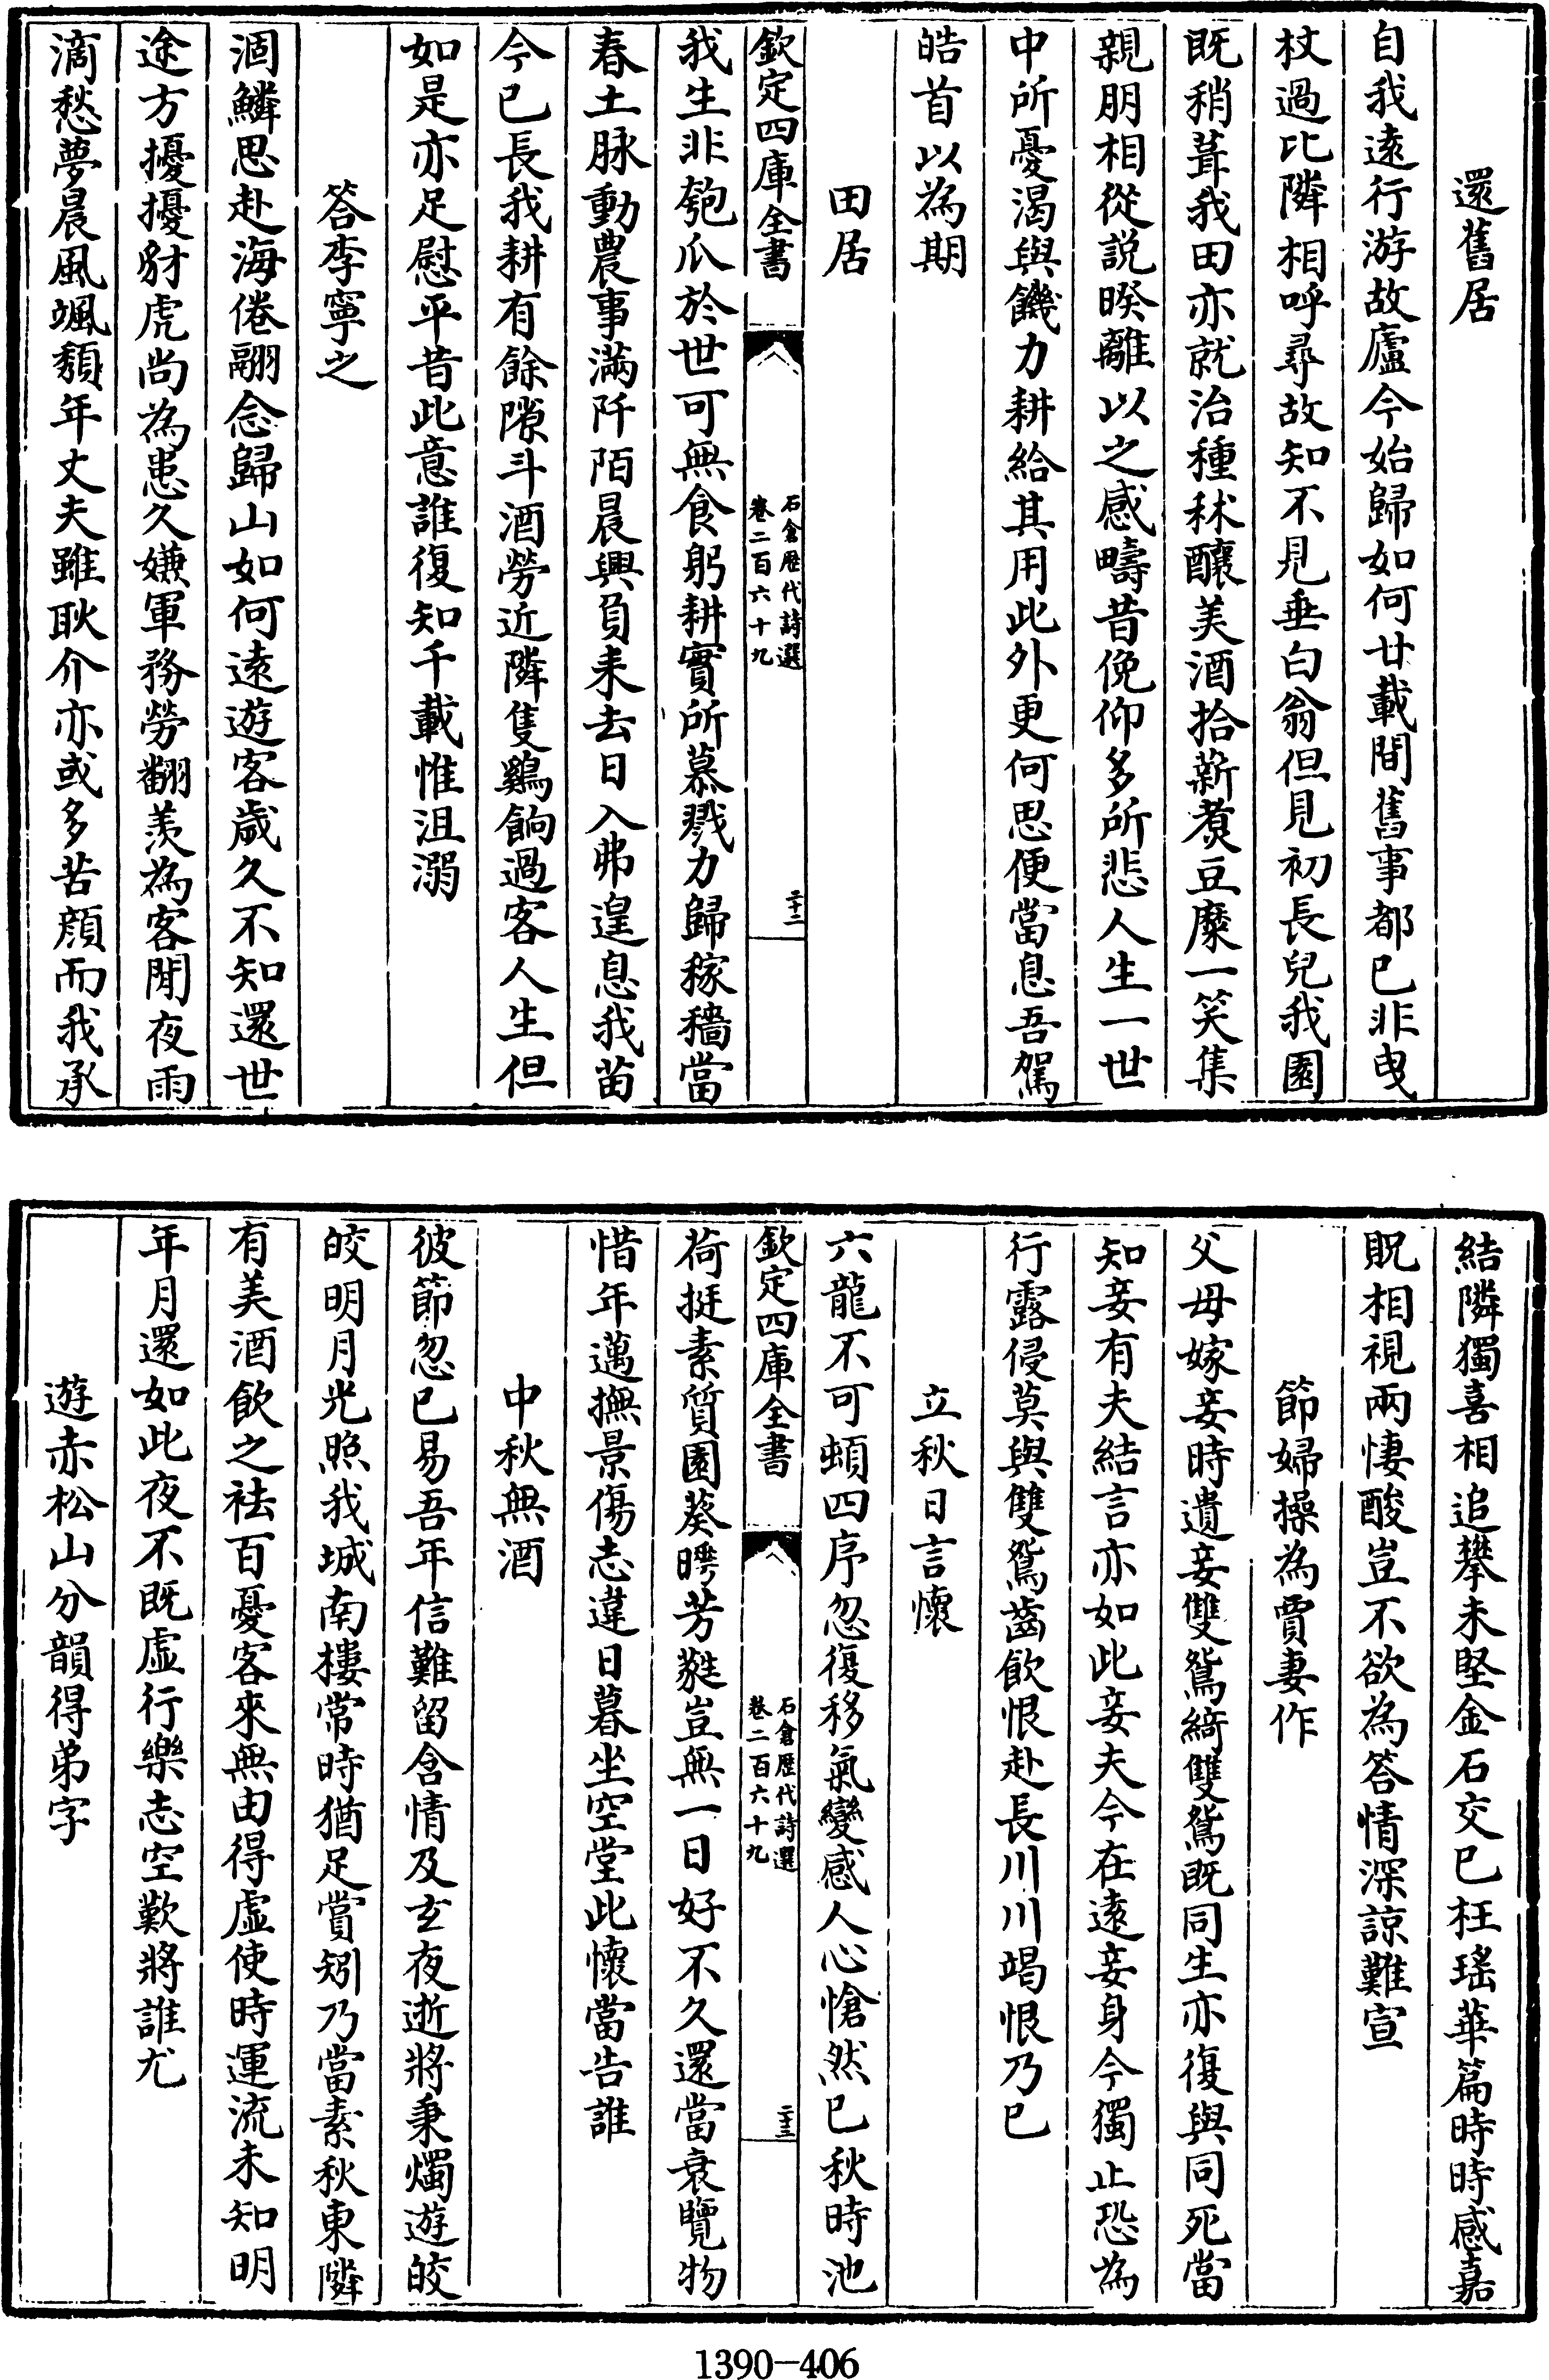 還舊居
自我遠行游故廬今始歸如何廿載間舊事都已非曵
杖過比隣相呼尋故知不見垂白翁但見初長兒我園
既稍葺我田亦就治種秫釀美酒拾薪煑豆糜一笑集
親朋相從説睽離以之感疇昔俛仰多所悲人生一世
中所憂渴與饑力耕給其用此外更何思便當息吾駕
皓首以為期
田居
欽定四庫全書
石倉歴代詩選
卷二百六十九
二十二
我生非匏瓜於世可無食躬耕實所慕戮力歸稼穡當
春土脉動農事滿阡陌晨興負耒去日入弗遑息我苗
今已長我耕有餘隙斗酒勞近隣隻鷄餉過客人生但
如是亦足慰平昔此意誰復知千載惟沮溺
答李寧之
涸鱗思赴海倦翮念歸山如何遠遊客歲久不知還世
途方擾擾豺虎尚為患久嫌軍務勞翻羡為客閒夜雨
滴愁夢晨風颯頽年丈夫雖耿介亦或多苦顔而我承
結隣獨喜相追攀未堅金石交已枉瑤華篇時時感嘉
貺相視兩悽酸豈不欲為答情深諒難宣
節婦操為賈妻作
父母嫁妾時遺妾雙鴛綺雙鴛既同生亦復與同死當
知妾有夫結言亦如此妾夫今在遠妾身今獨止恐為
行露侵莫與雙鴛齒飲恨赴長川川竭恨乃已
立秋日言懷
六龍不可頓四序忽復移氣變感人心愴然已秋時池
欽定四庫全書
石倉歴代詩選
卷二百六十九
二十三
荷挺素質園葵晔芳蕤豈無一日好不久還當衰覽物
惜年邁撫景傷志違日暮坐空堂此懷當告誰
中秋無酒
彼節忽已易吾年信難留含情及玄夜逝將秉燭遊皎
皎明月光照我城南樓常時猶足賞矧乃當素秋東隣
有美酒飲之袪百憂客來無由得虛使時運流未知明
年月還如此夜不既虛行樂志空歎將誰尤
遊赤松山分韻得弟字
1390-406